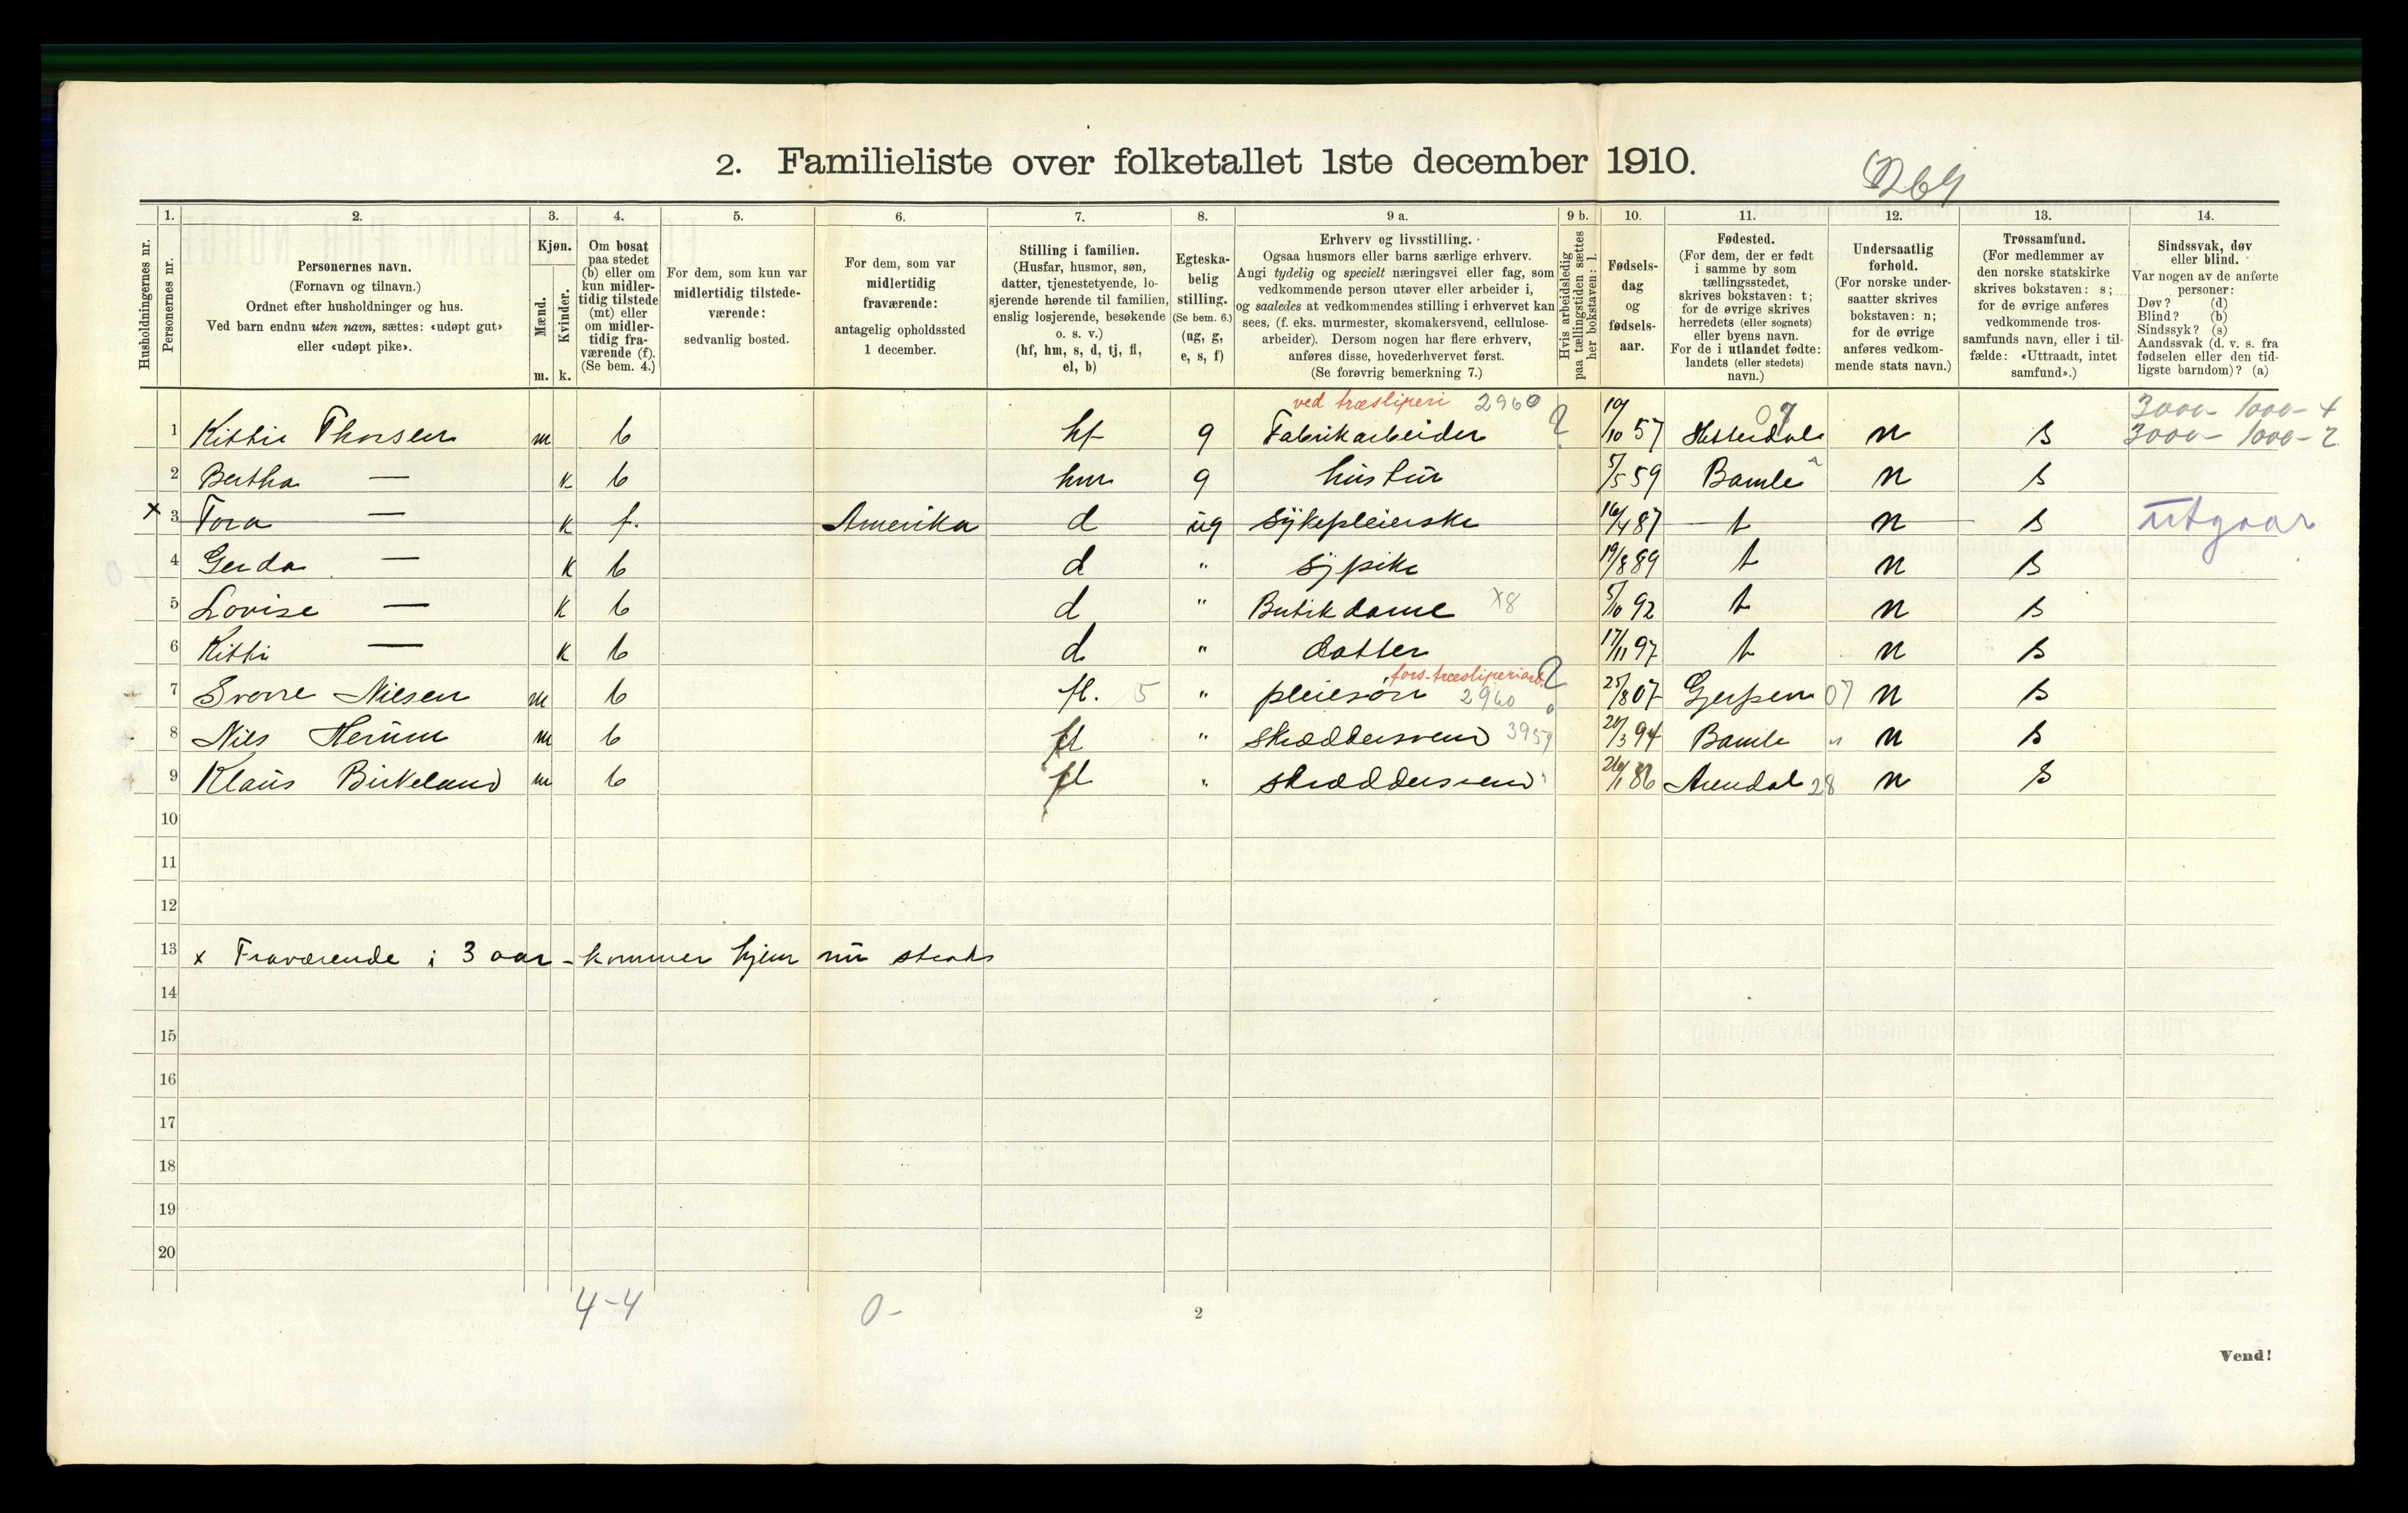 2. Familieliste over folketallet 1ste december 1910.
Husholdningernes nr.
1.
Personernes nr.
2.
Personernes navn.
(Fornavn og tilnavn.)
Ordnet efter husholdninger og hus.
Ved barn endnu uten navn, sættes: «udøpt gut»
eller «udøpt pike».
3.
Kjøn.
Mænd.
Kvinder.
m. k.
4.
Om bosat
paa stedet
(b) eller om
kun midler-
tidig tilstede
(mt) eller
om midler-
tidig fra-
værende (f).
(Se bem. 4.)
5.
For dem, som kun var
midlertidig tilstede-
værende:
sedvanlig bosted.
6.
For dem, som var
midlertidig
fraværende:
antagelig opholdssted
1 december.
7.
Stilling i familien.
(Husfar, husmor, søn,
datter, tjenestetyende, lo-
sjerende hørende til familien,
enslig losjerende, besøkende
o. s. v.)
(hf, hm, s, d, tj, fl,
el, b)
8.
Egteska-
belig
stilling.
(Se bem. 6.)
(ug, g,
e, s, f)
9 a.
Erhverv og livsstilling.
Ogsaa husmors eller barns særlige erhverv.
Angi tydelig og specielt næringsvei eller fag, som
vedkommende person utøver eller arbeider i,
og saaledes at vedkommendes stilling i erhvervet kan
sees, (f. eks. murmester, skomakersvend, cellulose-
arbeider). Dersom nogen har flere erhverv,
anføres disse, hovederhvervet først.
(Se forøvrig bemerkning 7.)
9 b.
Hvis arbeidsledig
paa tællingstiden sættes
her bokstaven: l.
10.
Fødsels-
dag
og
fødsels-
aar.
11.
Fødested.
(For dem, der er født
i samme by som
tællingsstedet,
skrives bokstaven: t;
for de øvrige skrives
herredets (eller sognets)
eller byens navn.
For de i utlandet fødte:
landets (eller stedets)
navn.)
12.
Undersaatlig
forhold.
(For norske under-
saatter skrives
bokstaven: n;
for de øvrige
anføres vedkom-
mende stats navn.)
13.
Trossamfund.
(For medlemmer av
den norske statskirke
skrives bokstaven: s;
for de øvrige anføres
vedkommende tros-
samfunds navn, eller i til-
fælde: «Uttraadt, intet
samfund».)
14.
Sindssvak, døv
eller blind.
Var nogen av de anførte
personer:
Døv? (d)
Blind? (b)
Sindssyk? (s)
Aandssvak (d. v. s. fra
fødselen eller den tid-
ligste barndom)? (a)
ved træsliperi 2960 07 3000- 1000- 4
1 Kittil Thorsen m b hf g Fabrikarbeider 10/10 57 Hitterdal n s 3000- 1000- 2
2 Bertha — k b hm g hustru 5/5 59 Bamle n s
x 3 Tora — k f. Amerika d ug Sykepleierske 16/4 87 t n s utgaar
4 Gerda — k b d " Sypike 19/8 89 t n s
5 Lovise — k b d " Butikdame x8 5/10 92 t n s
6 Kitti — k b d " datter 17/11 97 t n s
fors. træsliperiarb.
7 Sverre Nilsen m b fl. 5 " pleiesøn 2960 25/8 07 Gjerpen 07 n s
8 Nils Herum m b fl " skræddersvend 3959 /3 94 Bamle " n s
9 Klaus Birkeland m b fl " skræddersvend " 26/1 86 Arendal 28 n s
10
11
12
13 x Fraværende i 3 aar - kommer hjem nu straks
14
15
16
17
18
19
20
4-4 0-
2
Vend!